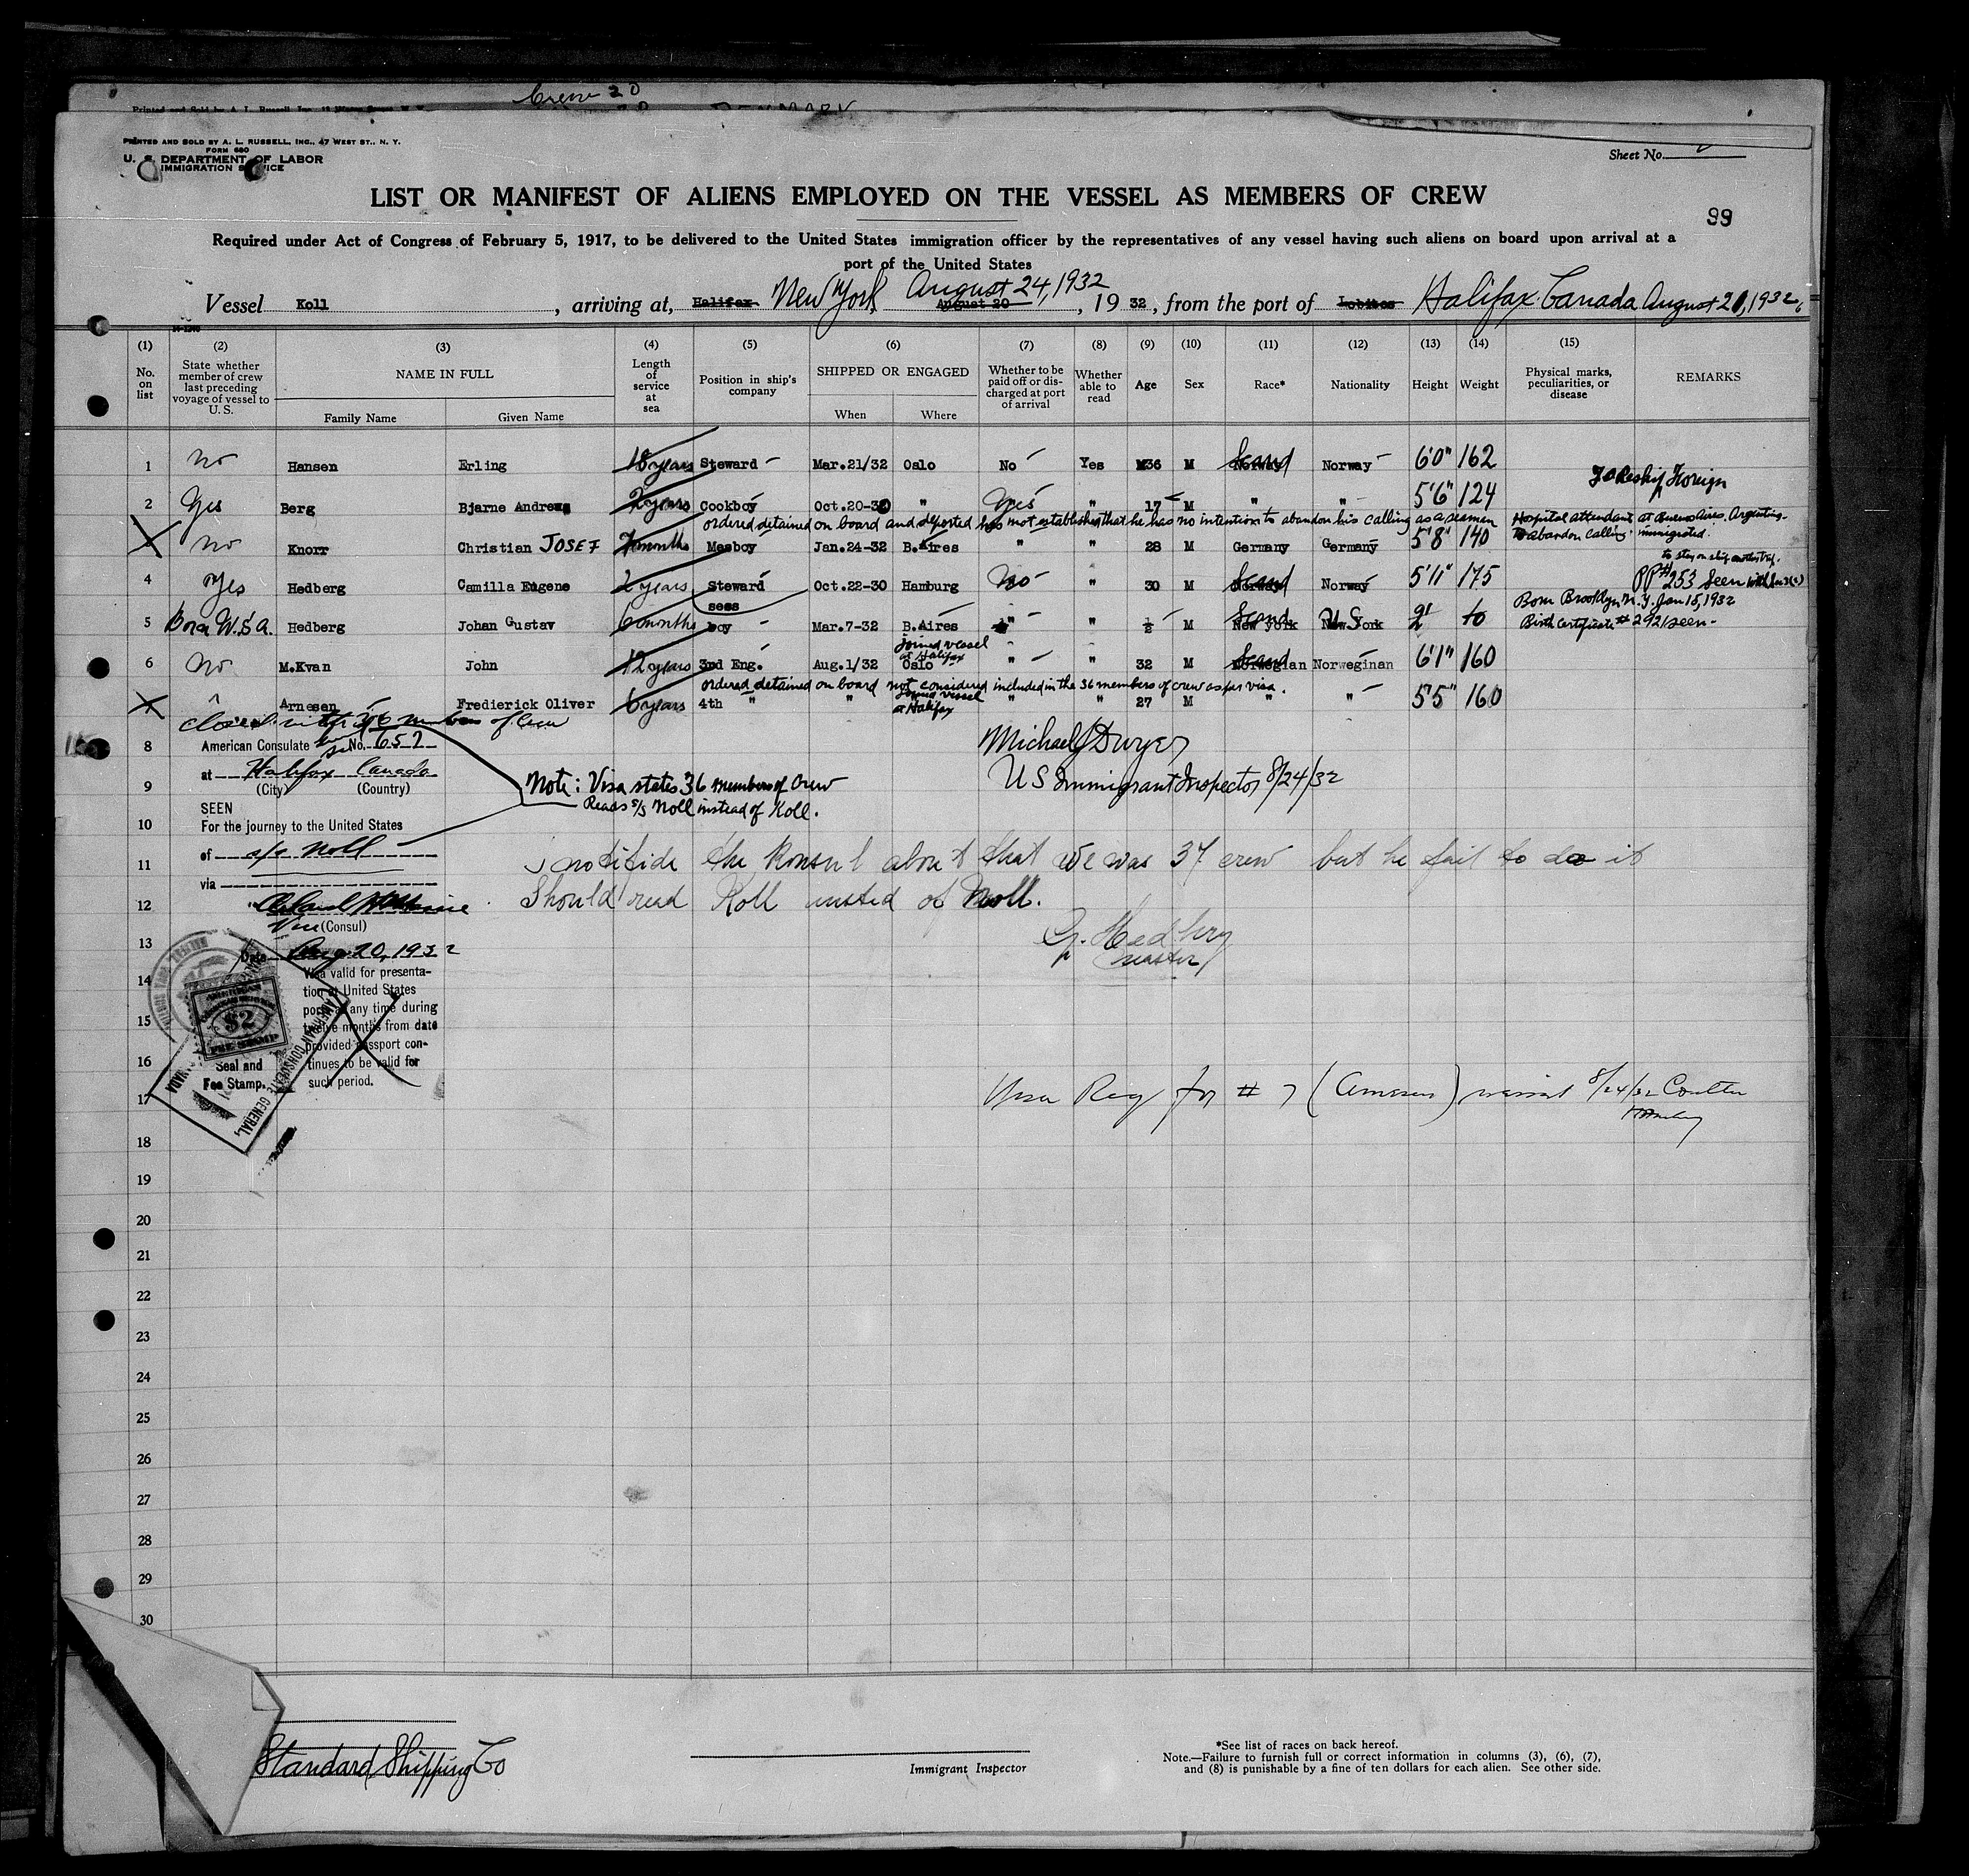 Crene 20
Printed and Sold by A. L. Russell, Inc.
PRINTED AND SOLD BY A. L. RUSSELL, INC., 47 WEST ST., N. Y.
FORM 680
U. S. DEPARTMENT OF LABOR
IMMIGRATION SERVICE
Sheet No.
LIST OR MANIFEST OF ALIENS EMPLOYED ON THE VESSEL AS MEMBERS OF CREW
99
Required under Act of Congress of February 5, 1917, to be delivered to the United States immigration officer by the representatives of any vessel having such aliens on board upon arrival at a
port of the United States
Vessel Koll, arriving at, Halifax New York, August 20 August 24, 1932, 1932, from the port of Lobitos Halifax Canada August 21, 1932
14-1240
(1) (2) (3) (4) (5) (6) (7) (8) (9) (10) (11) (12) (13) (14) (15)
No. on list
State whether member of crew last preceding voyage of vessel to U. S.
NAME IN FULL
Family Name Given Name
Length of service at sea
Position in ship's company
SHIPPED OR ENGAGED
When Where
Whether to be paid off or discharged at port of arrival
Whether able to read
Age
Sex
Race*
Nationality
Height
Weight
Physical marks, peculiarities, or disease
REMARKS
1 no Hansen Erling 18 years Steward Mar.21/32 Oslo No Yes 36 M Norway Scand Norway 6'0" 162
To Reship Foreign
2 Yes Berg Bjarne Andreas 2 years Cookboy Oct.20-30 " Yes " 17 M " " 5'6" 124
ordered detained on board and deported has not established that he has no intention to abandon his calling as a seaman Hospital attendant at Buenos Aires, Argentina.
3 no Knorr Christian JOSEF 7 months Mesboy Jan.24-32 B.Aires " " 28 M Germany Germany 5'8" 140 To abandon calling immigrated.
4 Yes Hedberg Camilla Eugene 2 years Steward sees Oct.22-30 Hamburg No " 30 M Norway Scand Norway 5'11" 175 PP# 253 Seen
Born Brooklyn N.Y. Jan 15, 1932
5 Born U.S.A. Hedberg Johan Gustav 6 months boy Mar.7-32 B.Aires " " ½ M New York Scand New York U.S. 2' 10 Birth Certificate # 2921 seen -
Joined vessel at Halifax
6 no M.Kvan John 12 years 3rd Eng. Aug.1/32 Oslo " " 32 M Norwegian Scand Norweginan 6'1" 160
ordered detained on board not considered included in the 36 members of crew as per visa.
7 " Arnesen Frederick Oliver 6 years 4th " " Joined vessel at Halifax " " 27 M " " 5'5" 160
closed with 36 members of Crew
8 American Consulate No. 657
Michael J Dwyer
at Halifax Canada
US Immigrant Inspector 8/24/32
9 (City) (Country)
Note: Visa states 36 members of Crew
Reads s/s Noll instead of Koll.
SEEN
10 For the journey to the United States
of s/s Noll
11 i notifide the konsul about that we was 37 crew but he fail to do it
via
12 Should read Koll insted of Noll.
Vice (Consul)
G. Hedberg
master
13 Date Aug. 20, 1932
14 Visa valid for presenta-
tion at United States
ports at any time during
15 twelve months from date
provided passport con-
16 tinues to be valid for
such period.
AMERICAN
$2
FEE STAMP
Seal and
Fee Stamp.
AMERICAN CONSULATE GENERAL,
17 Visa Req for # 7 (Arnesen) 8/24/32 Coulter
18
19
20
21
22
23
24
25
26
27
28
29
30
Standard Shipping Co
Immigrant Inspector
*See list of races on back hereof.
Note.—Failure to furnish full or correct information in columns (3), (6), (7),
and (8) is punishable by a fine of ten dollars for each alien. See other side.